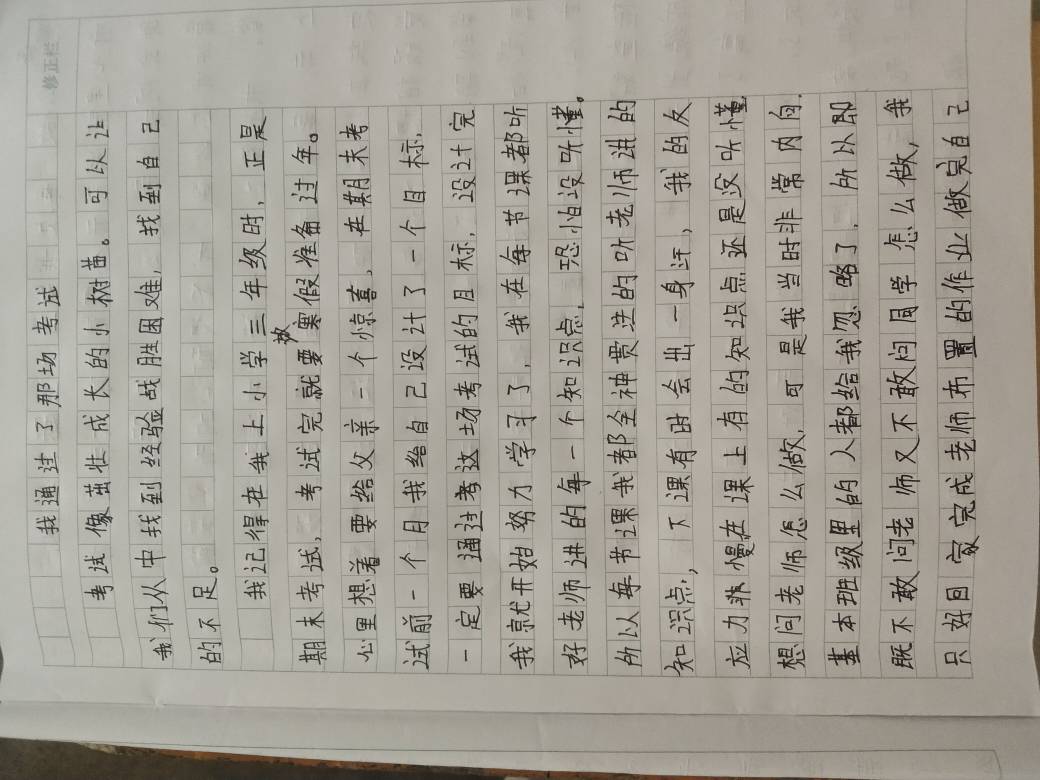 修正栏
我通过了那场考试
考试像茁壮成长的小树苗。可以让
我们从中找到经验战胜困难，找到自己
的不足。
我记得在我上小学三年级时，正是
期末考试，考试完就要放寒假准备过年。
心里想着要给父亲一个惊喜，在期末考
试前一个月我给自己设计了一个目标，
一定要通过考这场考试的目标，设计完
我就开始努力学习了，我在每节课都听
好老师讲的每一个知识点，恐怕没听懂。
所以每节课我都全神贯注的听老师讲的
知识点，下课有时会出一身汗，我的反
应力非慢在课上有的知识点还是没听懂
想问老师怎么做，可是我当时非常内向，
基本班级里的人都给我忽略了，所以即
既不敢问老师又不敢问同学怎么做，我
只好回家完成老师布置的作业做完自己